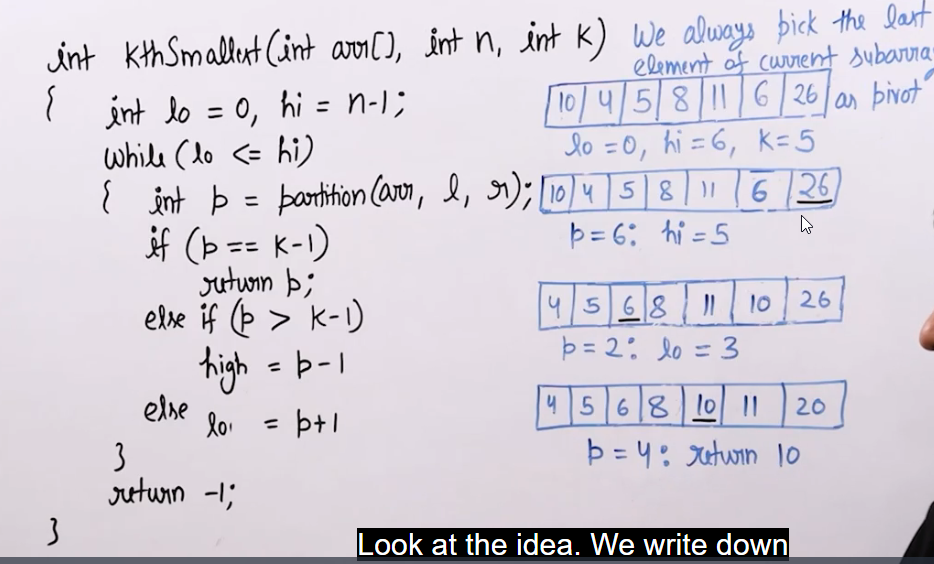 int kthSmallest(int arr[], int n, int k)
{ int lo = 0, hi = n-1;
while (lo <= hi)
{ int p = partition(arr, l, r);
if (p == k-1)
return p;
else if (p > k-1)
high = p-1
else lo = p+1
}
return -1;
}
We always pick the last
element of current subarra
as pivot
10 4 5 8 11 6 26
lo = 0, hi = 6, k = 5
10 4 5 8 11 6 26
p = 6: hi = 5
4 5 6 8 11 10 26
p = 2: lo = 3
4 5 6 8 10 11 20
p = 4: return 10
Look at the idea. We write down